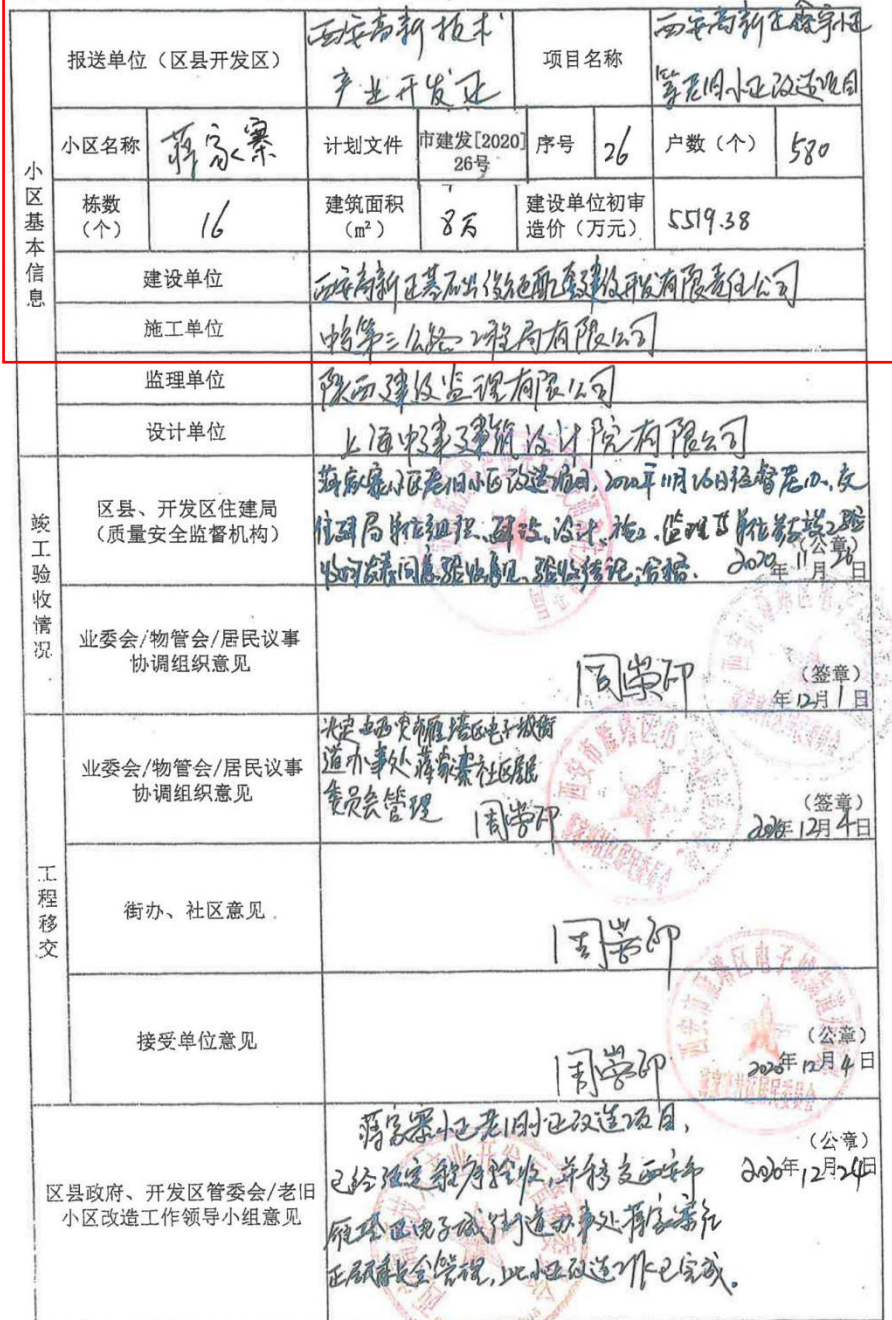 报送单位（区县开发区）
西安高新技术
产业开发区
项目名称
西安高新区鑫宇小区
等老旧小区改造项目
小区基本信息
小区名称
蒋家寨
计划文件
市建发[2020]
26号
序号
26
户数（个）
580
栋数
（个）
16
建筑面积
（m²）
8万
建设单位初审
造价（万元）
5519.38
建设单位
西安高新区基础设施配套建设开发有限责任公司
施工单位
中铁第三公路工程局有限公司
监理单位
陕西建设监理有限公司
设计单位
上海中建建筑设计院有限公司
竣工验收情况
区县、开发区住建局
（质量安全监督机构）
蒋家寨小区老旧小区改造项目，2020年11月26日经督老办、
住建局单位组织、建设、设计、施工、监理等单位参加竣工验
收同意验收意见，验收结论：合格。
（公章）
2020年11月26日
业委会/物管会/居民议事
协调组织意见
周崇印
（签章）
年12月1日
工程移交
业委会/物管会/居民议事
协调组织意见
决定由西安市雁塔区电子城街
道办事处蒋家寨社区居民
委员会管理
周崇印
（签章）
2020年12月4日
街办、社区意见
周崇印
接受单位意见
周崇印
（公章）
2020年12月4日
区县政府、开发区管委会/老旧
小区改造工作领导小组意见
蒋家寨小区老旧小区改造项目，
已经法定程序验收，并移交西安市
雁塔区电子城街道办事处蒋家寨社
区居民委员会管理，此小区改造工作已完成。
（公章）
2020年12月24日